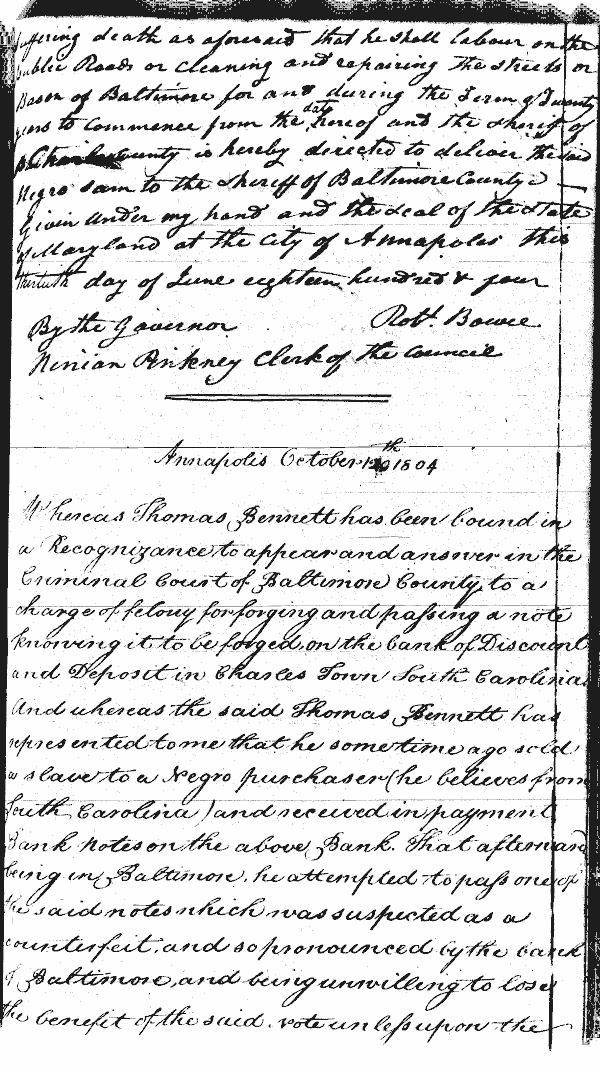 suffering death as aforesaid that he shall labour on the
public Roads or cleaning and repairing the streets or
Bason of Baltimore for and during the Term of Twenty
years to commence from the date hereof and the sherif of
County is hereby directed to deliver the said
Negro Sam to the Sheriff of Baltimore County
Givin under my hand and the seal of the state
of Maryland at the City of Annapolis this
thirtieth day of June eighteen hundred & four
By the Governor Robt. Bowie
Ninian Pinkney Clerk of the Council
Annapolis October th 1804
Whereas Thomas Bennett has been bound in
a Recognizance to appear and answer in the
Criminal Court of Baltimore County to a
charge of felony for forging and passing a note
knowing it to be forged on the bank of Discount
and Deposit in Charles Town South Carolina.
And whereas the said Thomas Bennett has
represented to me that he some time ago sold
a slave to a Negro purchaser (he believes from
South Carolina) and received in payment
Bank notes on the above Bank. That afterward
being in Baltimore, he attempted to pass one of
the said notes which was suspected as a
counterfeit, and so pronounced by the bank
of Baltimore, and being unwilling to lose
the benefit of the said note unless upon the